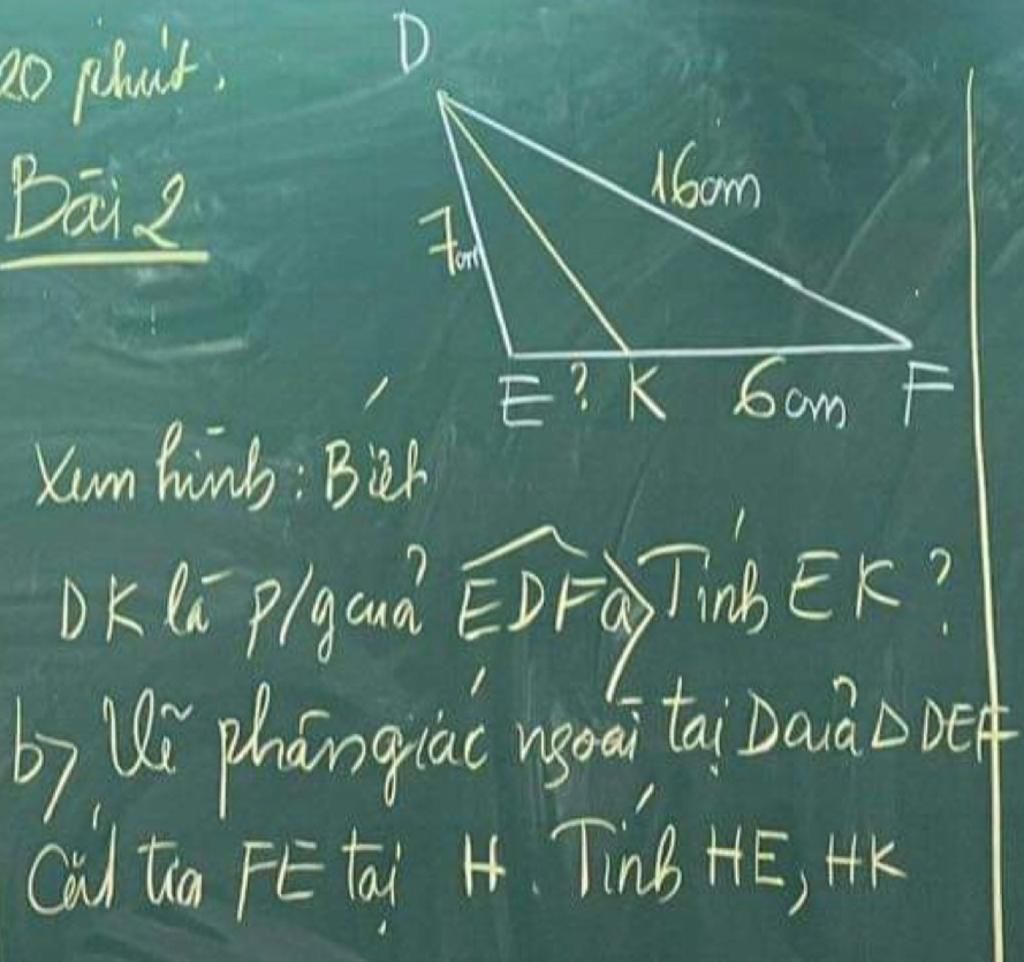 20 phút.
Bài 2
D
16cm
7cm
E ? K 6cm F
Xem hình: Biết
DK là p/g của EDF a) Tính EK?
b) Vẽ phân giác ngoài tại D của Δ DEF
Cắt tia FE tại H. Tính HE, HK